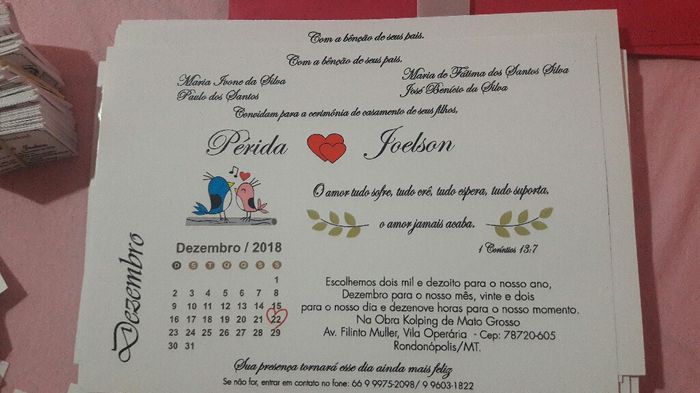 Com a bênção de seus pais.
Com a bênção de seus pais.
Maria Ivone da Silva
Paulo dos Santos
Maria de Fátima dos Santos Silva
José Benício da Silva
Convidam para a cerimônia de casamento de seus filhos,
Périda Joelson
O amor tudo sofre, tudo crê, tudo espera, tudo suporta,
o amor jamais acaba.
1 Coríntios 13:7
Dezembro
Dezembro / 2018
D S T Q Q S S
1
2 3 4 5 6 7 8
9 10 11 12 13 14 15
16 17 18 19 20 21 22
23 24 25 26 27 28 29
30 31
Escolhemos dois mil e dezoito para o nosso ano,
Dezembro para o nosso mês, vinte e dois
para o nosso dia e dezenove horas para o nosso momento.
Na Obra Kolping de Mato Grosso
Av. Filinto Muller, Vila Operária - Cep: 78720-605
Rondonópolis/MT.
Sua presença tornará esse dia ainda mais feliz
Se não for, entrar em contato no fone: 66 9 9975-2098/ 9 9603-1822